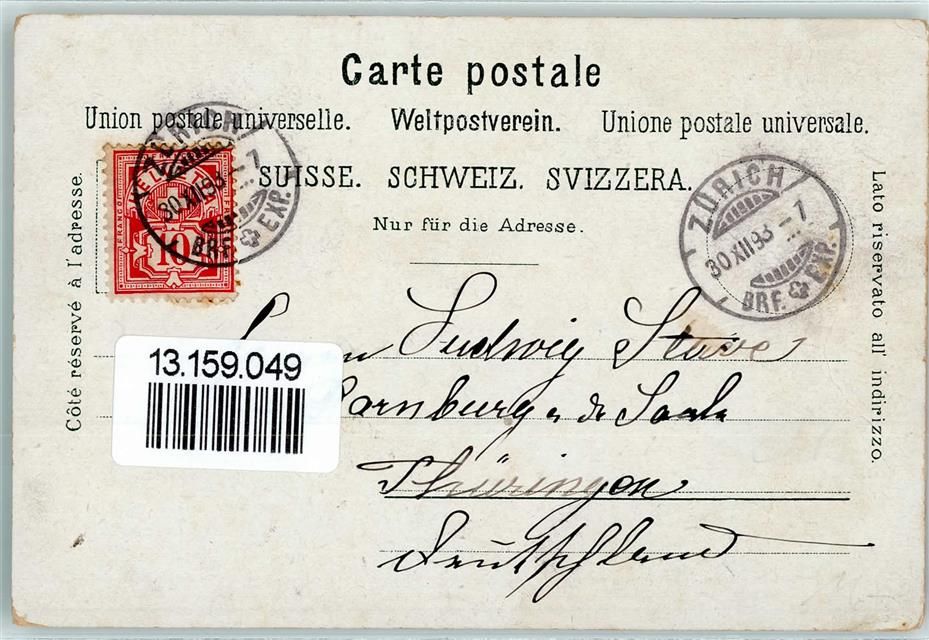 Carte postale
Union postale universelle. Weltpostverein. Unione postale universale.
SUISSE. SCHWEIZ. SVIZZERA.
Nur für die Adresse.
Côté réservé à l'adresse.
Lato riservato all' indirizzo.
FRANCO
10
ZÜRICH
30 XII 93 – 7
BRF. EXP.
ZÜRICH
30 XII 93 – 7
BRF. EXP.
13.159.049
Ludwig
Dornburg a. d. Saale
Thüringen
Deutschland